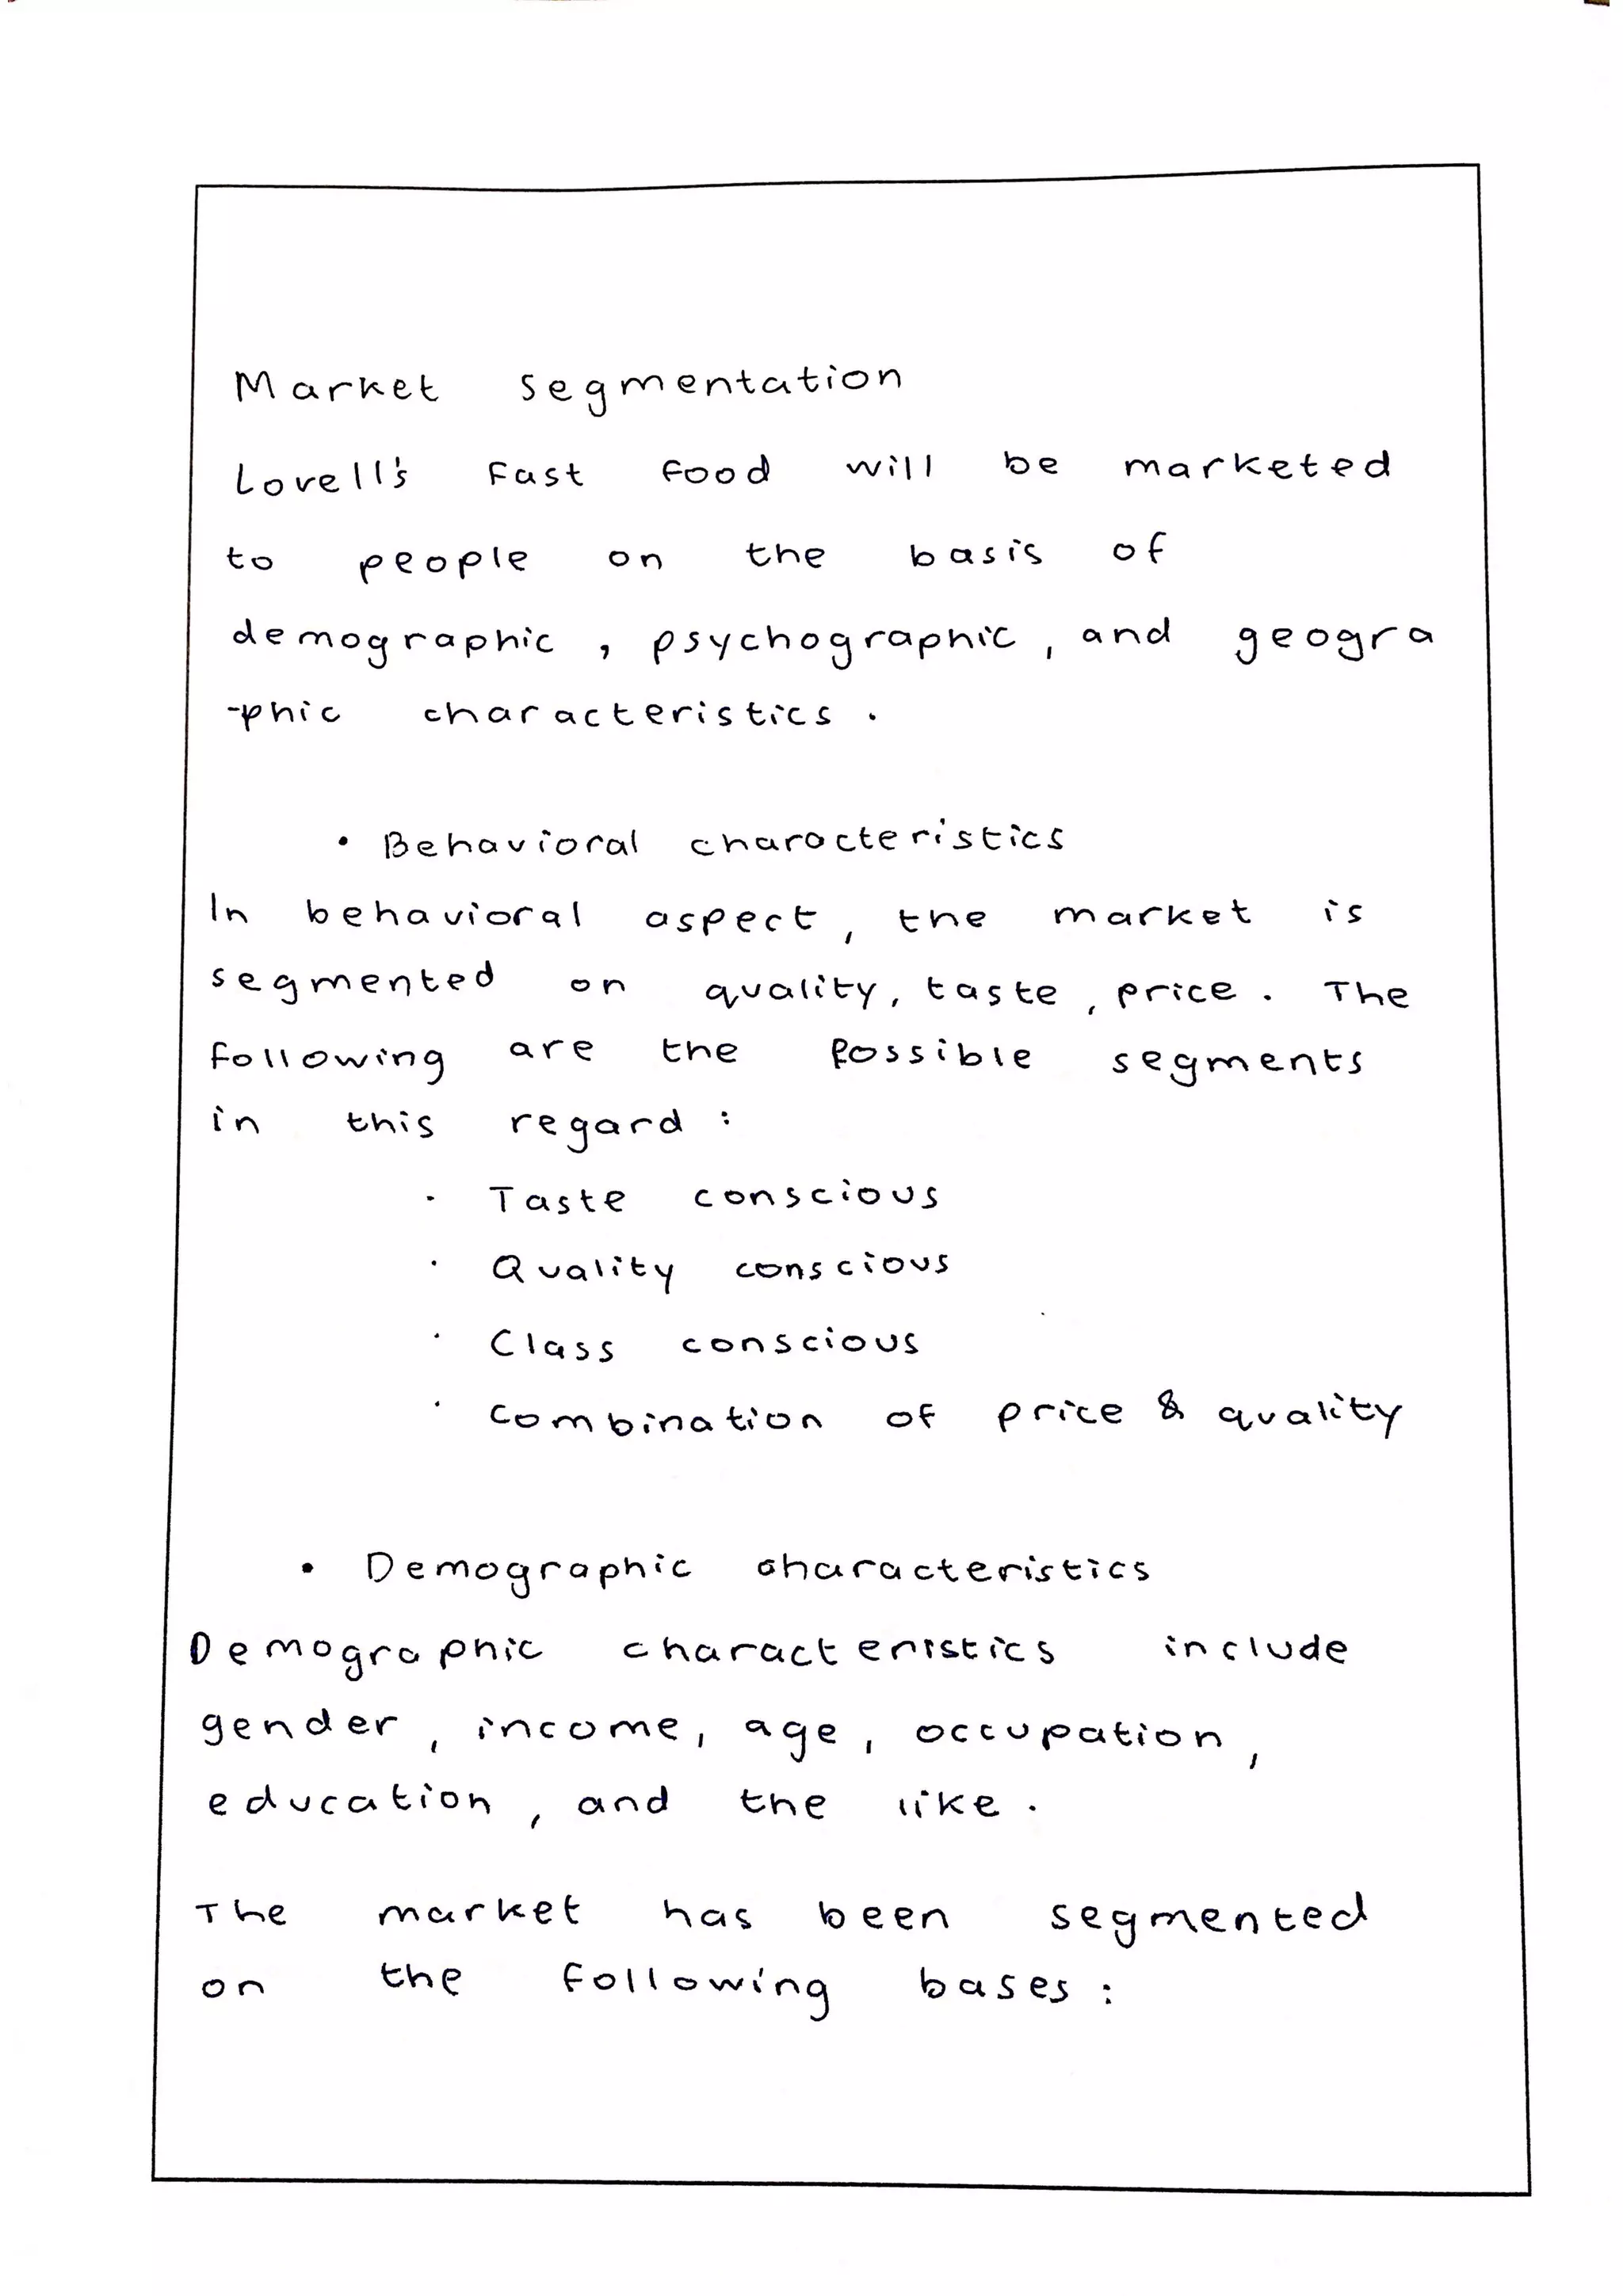 Market Segmentation
Lovell's Fast Food will be marketed
to people on the basis of
demographic, psychographic, and geogra
-phic characteristics.
• Behavioral characteristics
In behavioral aspect, the market is
segmented on quality, taste, price. The
following are the possible segments
in this regard:
• Taste conscious
• Quality conscious
• Class conscious
• Combination of price & quality
• Demographic characteristics
Demographic characteristics include
gender, income, age, occupation,
education, and the like.
The market has been segmented
on the following bases: